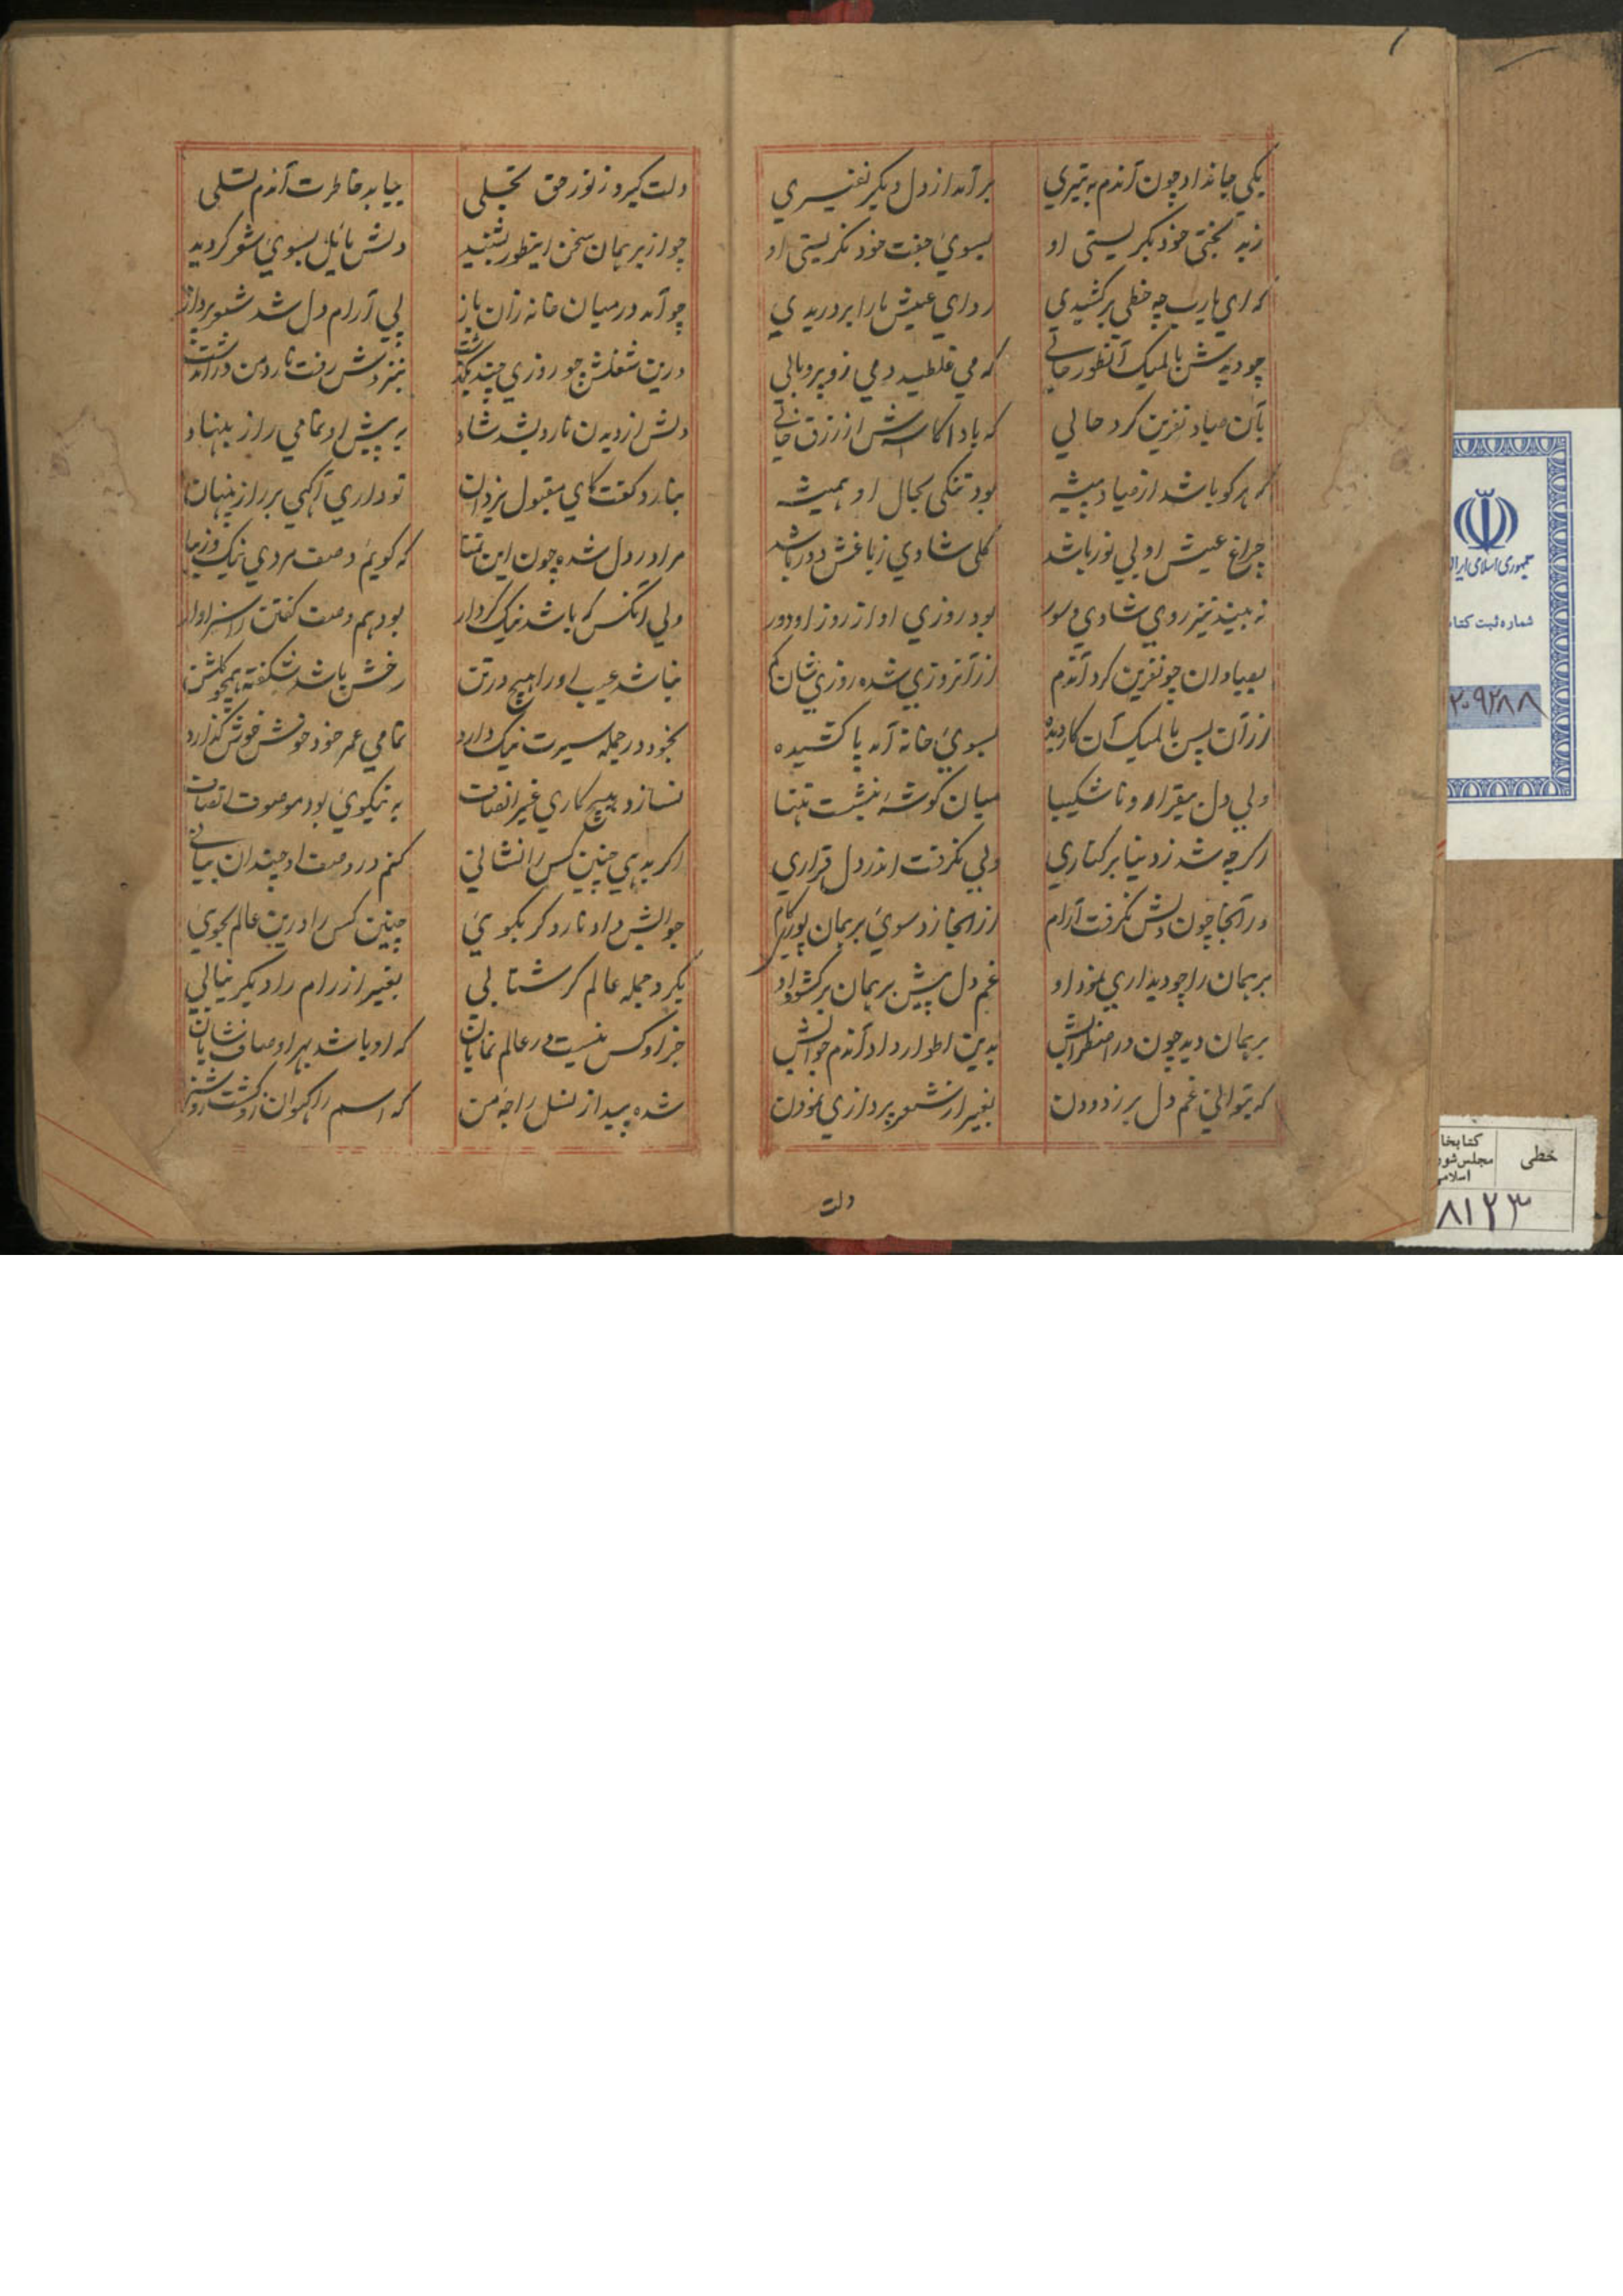 یکی جانداد چون آندم به تیری برآمد از دل دیگر نفیری
زبد بختی خود بگریستی او بسوی جفت خود نگریستی او
که ای یارب چه خطی برکشیدی ردای عیش ما را بردریدی
چو دیدش بالمیک آنطور حالی که می غلطید دمی زو پر و بالی
بآن صیاد نفرین کرد حالی که بادا کاسه اش از رزق خالی
که هرکو باشد از صیاد پیشه بود تنگی بحال او همیشه
چراغ عیش او بی نور باشد گلی شادی ز باغش دور باشد
نه بیند نیز روی شادی و سور بود روزی او از روز او دور
بصیادان چو نفرین کرد آندم از آنروزی شده روزی شان کم
از آن پس بالمیک آن کار دیده بسوی خانه آمد پا کشیده
ولی دل بیقرار و ناشکیبا میان گوشهٔ بنشست تنها
اگرچه شد ز دنیا برکناری ولی نگرفت اندر دل قراری
در آنجا چون دلش نگرفت آرام از آنجا زد سوی برهمان پور گام
برهمان را چو دیداری نمود او غم دل پیش برهمان برگشود او
برهمان دید چون در اضطرابش بدین اطوار داد آندم جوابش
که بتوانی غم دل بر زدودن بغیر از شعر پردازی نمودن
دلت
دلت گیرد ز نور حق تجلی بیابد خاطرت آندم تسلی
چو از برهمان سخن اینطور بشنید دلش مایل بسوی شعر گردید
چو آمد درمیان خانه زان باز پی آرام دل شد شعر پرداز
درین شغلش چو روزی چند بگذشت بنزدش رفت نارد من در آندشت
دلش از دیدن نارد بشد شاد به پیش او تمامی راز بنهاد
بنارد گفت کای مقبول یزدان تو داری آگهی بر راز پنهان
مرا در دل شده چون این تمنا که گویم وصف مردی نیک و زیبا
ولی آنکس که باشد نیک کردار بود هم وصف گفتن را سزاوار
نباشد عیب او را هیچ در تن رخش باشد شکفته همچو گلشن
بخود در جمله سیرت نیک دارد تمامی عمر خود خوش خوش گذارد
نسازد هیچ کاری غیر انصاف به نیکوی بود موصوف اتصاف
اگر بدهی چنین کس را نشانی کنم در وصف او چندان بیانی
جوابش داد نارد گر بگوئی چنین کس را درین عالم بجوئی
بگرد جمله عالم گر شتابی بغیر از رام را دیگر نیابی
جز او کس نیست در عالم نمایان که او باشد بهر اوصاف شایان
شده پیدا ز نسل راجه من که اسم راگهوان زو گشت روشن
جمهوری اسلامی ایران
شماره ثبت کتاب
۲۰۹۲۸۸
خطی
کتابخا
مجلس شور
اسلامی
۸۱۲۳